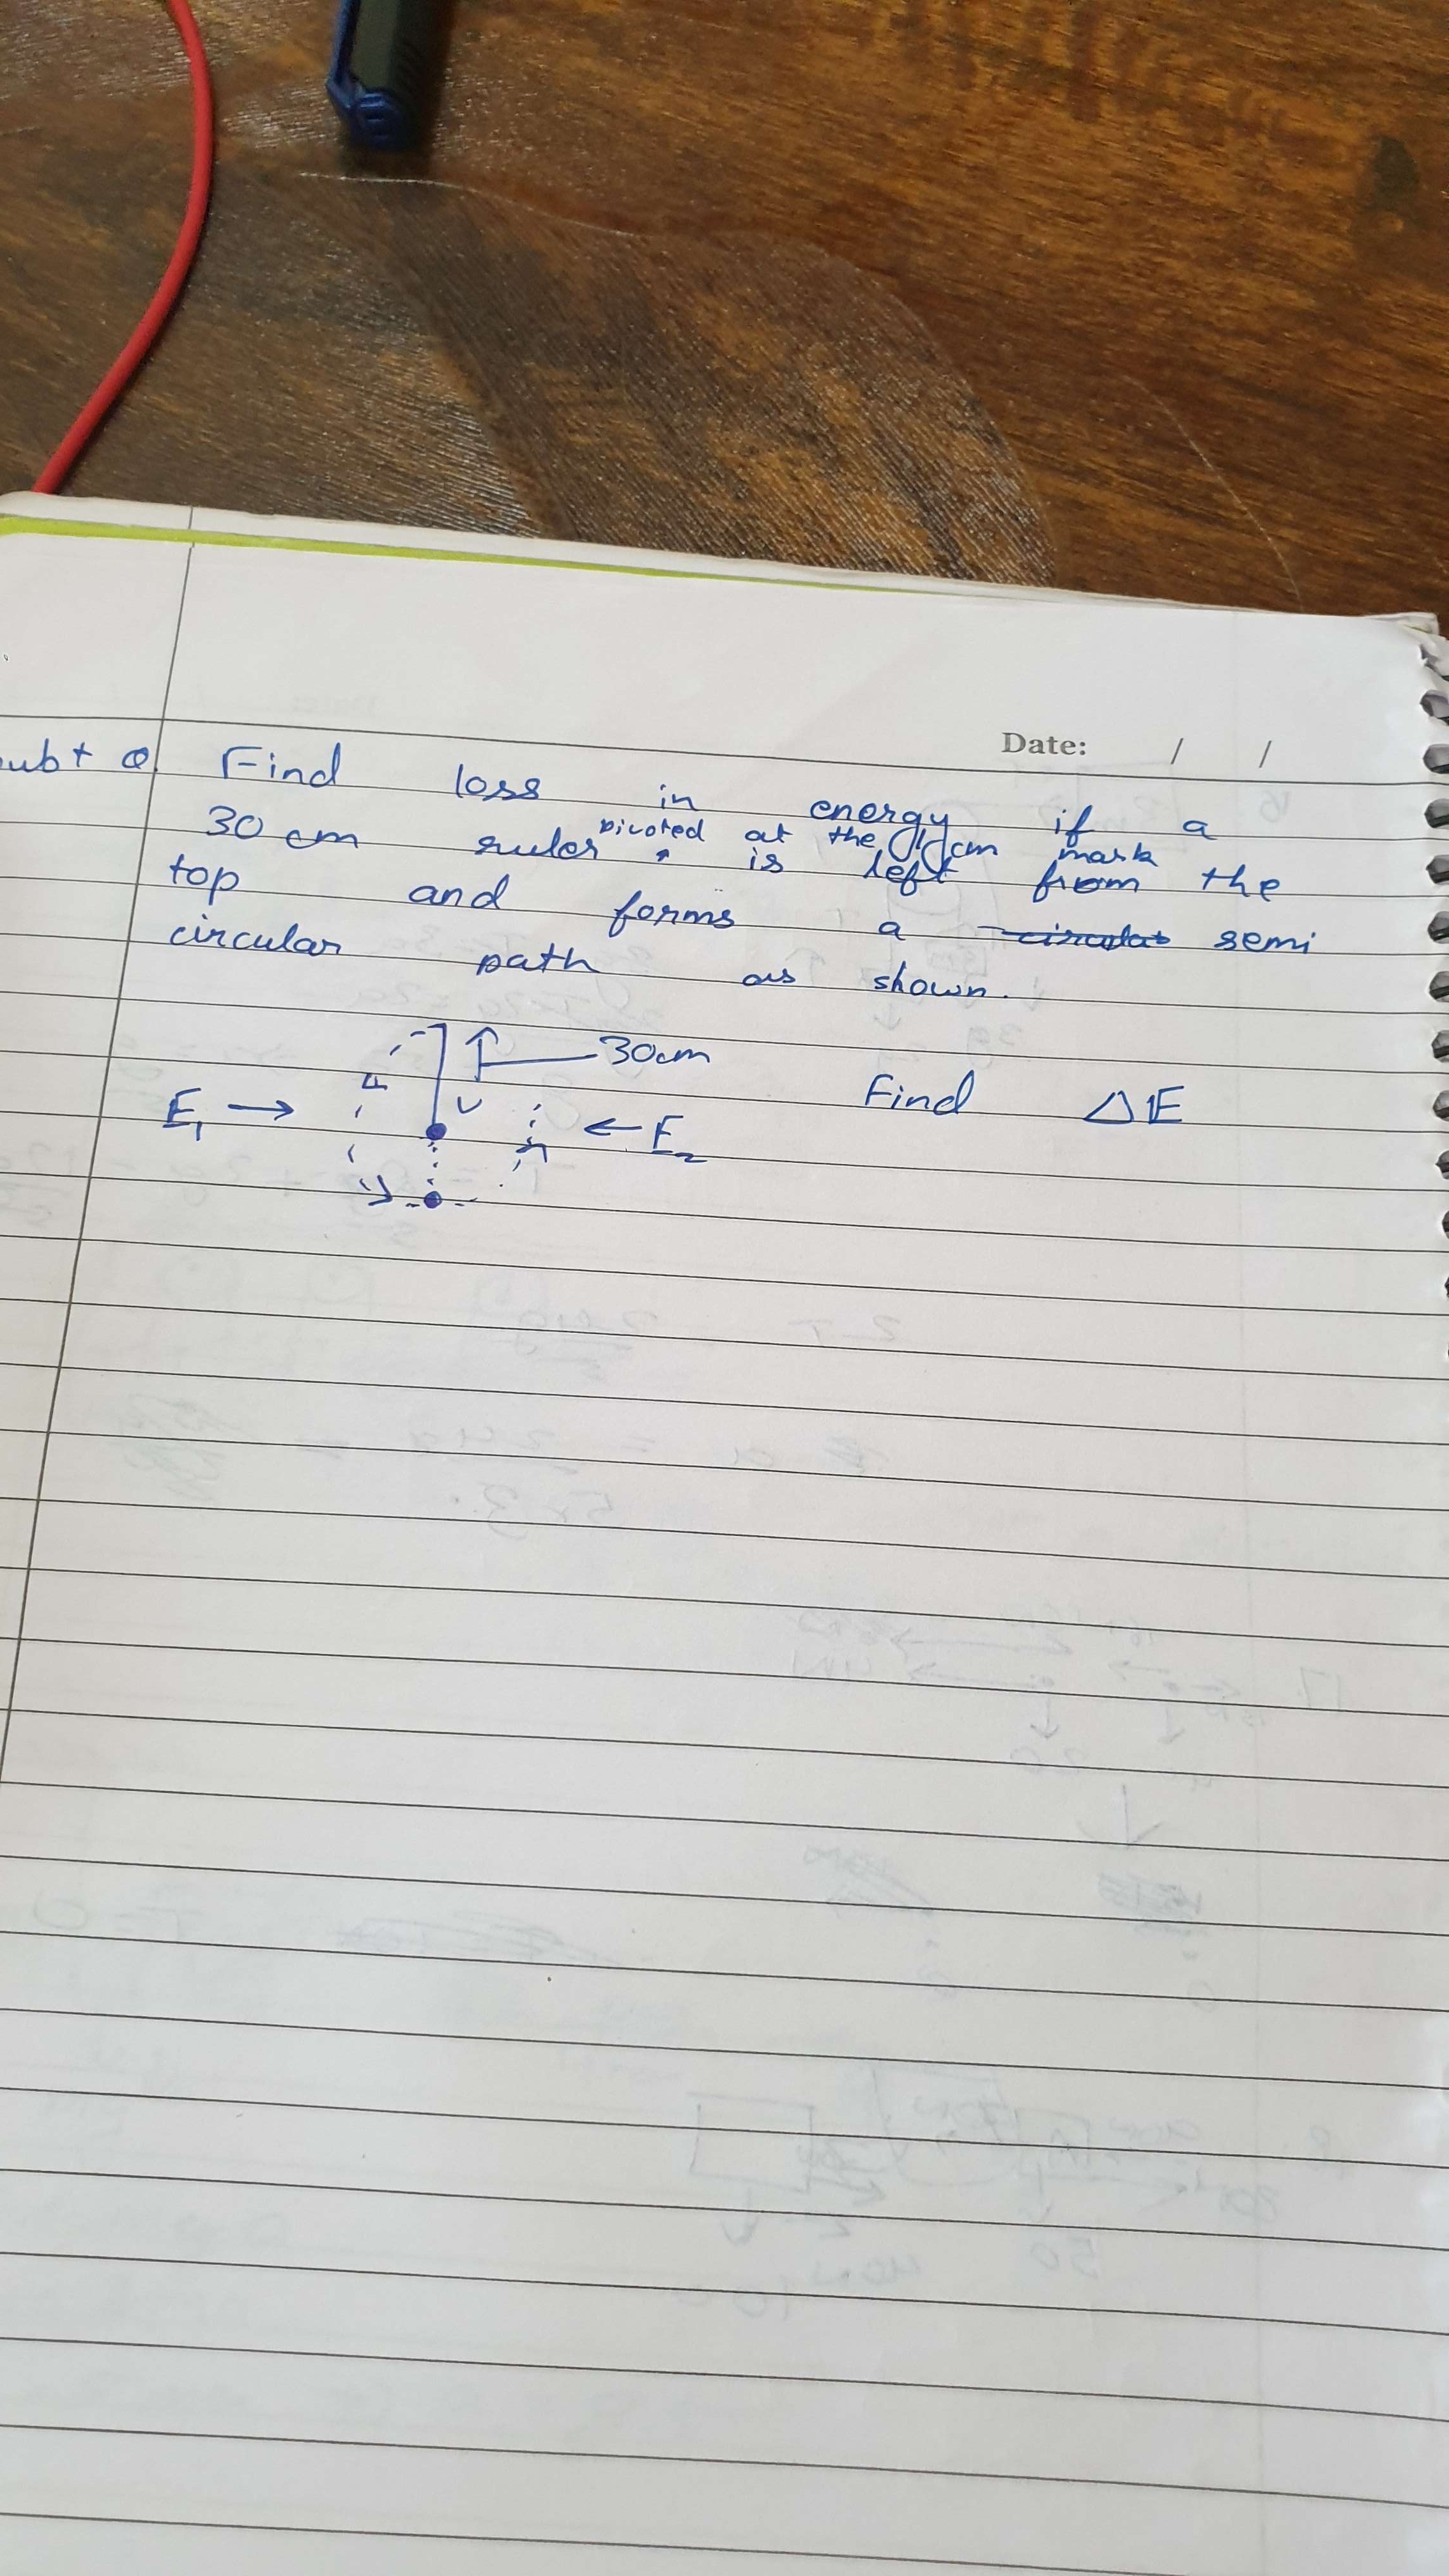 Date: / /
ubt Q. Find loss in energy if a
pivoted at the cm mark
30 cm ruler is left from the
top and forms a circular semi
circular path as shown.
30cm
E₁ → ← E₂
Find ΔE